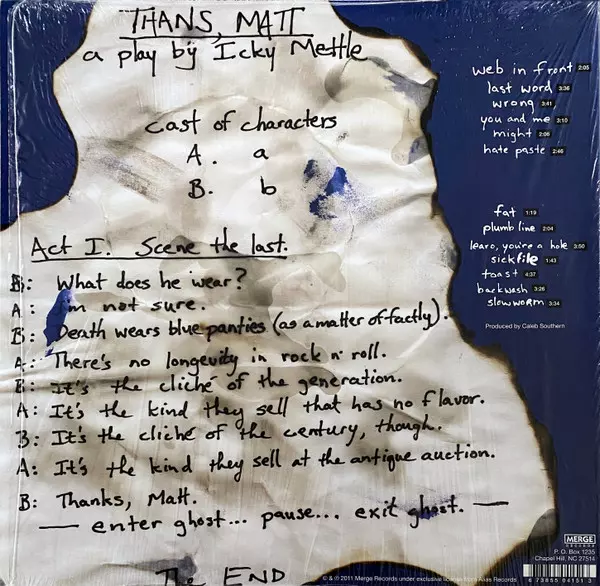 THANS, MATT
a play by Icky Mettle
cast of characters
A. a
B. b
Act I. Scene the last.
B: What does he wear?
A: I'm not sure.
B: Death wears blue panties (as a matter of factly).
A: There's no longevity in rock n' roll.
B: It's the cliché of the generation.
A: It's the kind they sell that has no flavor.
B: It's the cliché of the century, though.
A: It's the kind they sell at the antique auction.
B: Thanks, Matt.
— enter ghost... pause... exit ghost. —
The END
web in front 2:05
last word 3:36
wrong 3:41
you and me 3:10
might 2:06
hate paste 2:46
fat 1:19
plumb line 2:04
learo, you're a hole 3:50
sickfile 1:43
toast 4:37
backwash 3:26
slow worm 3:34
Produced by Caleb Southern
MERGE
RECORDS
P. O. Box 1235
Chapel Hill, NC 27514
© & ℗ 2011 Merge Records under exclusive license from Alias Records